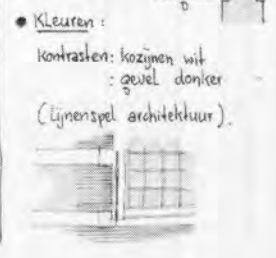 • Kleuren :
Kontrasten: kozijnen wit
: gevel donker
(Lijnenspel architektuur).